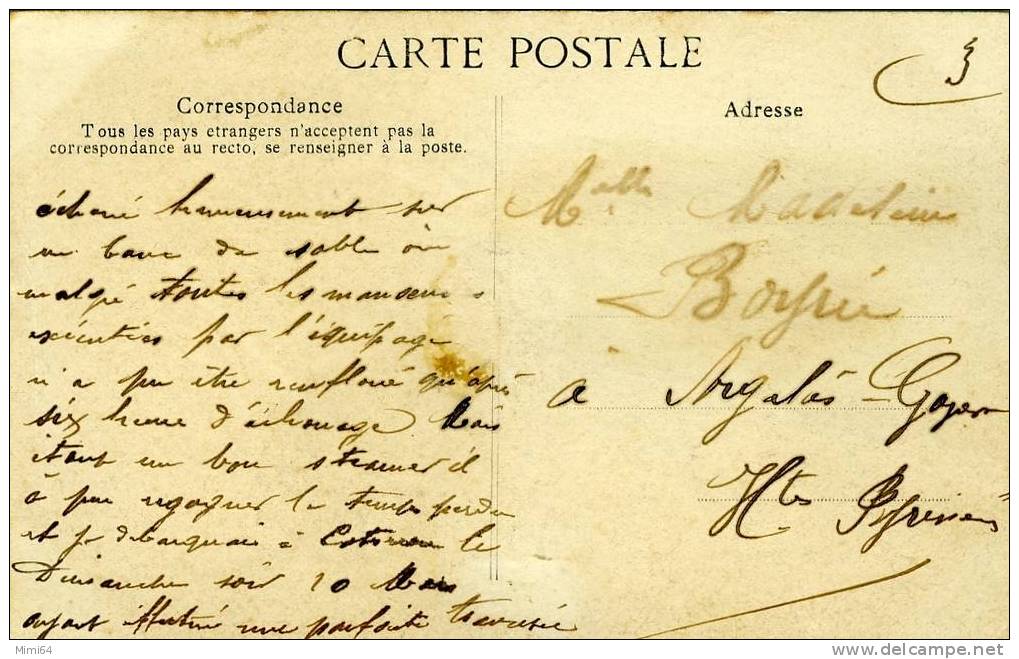 CARTE POSTALE
3
Correspondance
Tous les pays etrangers n'acceptent pas la
correspondance au recto, se renseigner à la poste.
échoué heureusement sur
un banc de sable où
malgré toutes les manoeuvres
exécutées par l'équipage
n'a pu être renfloué qu'après
six heures d'échouage Mais
étant un bon steamer il
à pu regagner le temps perdu
et je débarquais à le
Dimanche soir 10 Mars
ayant effectué une parfaite traversée
Adresse
Melle Madeleine
Boyrie
a Argelès-Gazost
Htes Pyrénées
Mimi64
delcampe.net